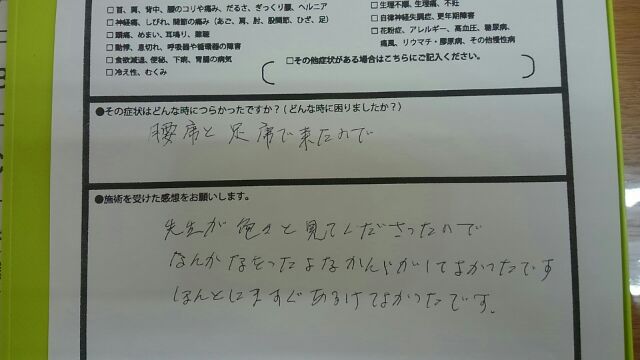 □首、肩、背中、腰のコリや痛み、だるさ、ぎっくり腰、ヘルニア
□神経痛、しびれ、関節の痛み（あご、肩、肘、股関節、ひざ、足）
□頭痛、めまい、耳鳴り、難聴
□動悸、息切れ、呼吸器や循環器の障害
□食欲減退、便秘、下痢、胃腸の病気
□冷え性、むくみ
□生理不順、生理痛、不妊
□自律神経失調症、更年期障害
□花粉症、アレルギー、高血圧、糖尿病、
痛風、リウマチ・膠原病、その他慢性病
□その他症状がある場合はこちらにご記入ください。
●その症状はどんな時につらかったですか？（どんな時に困りましたか？）
腰痛と足痛で来たので
●施術を受けた感想をお願いします。
先生が色々と見てくださったので
なんかなをったよなかんじがしてよかったです
ほんとにますぐあるけてよかったです。